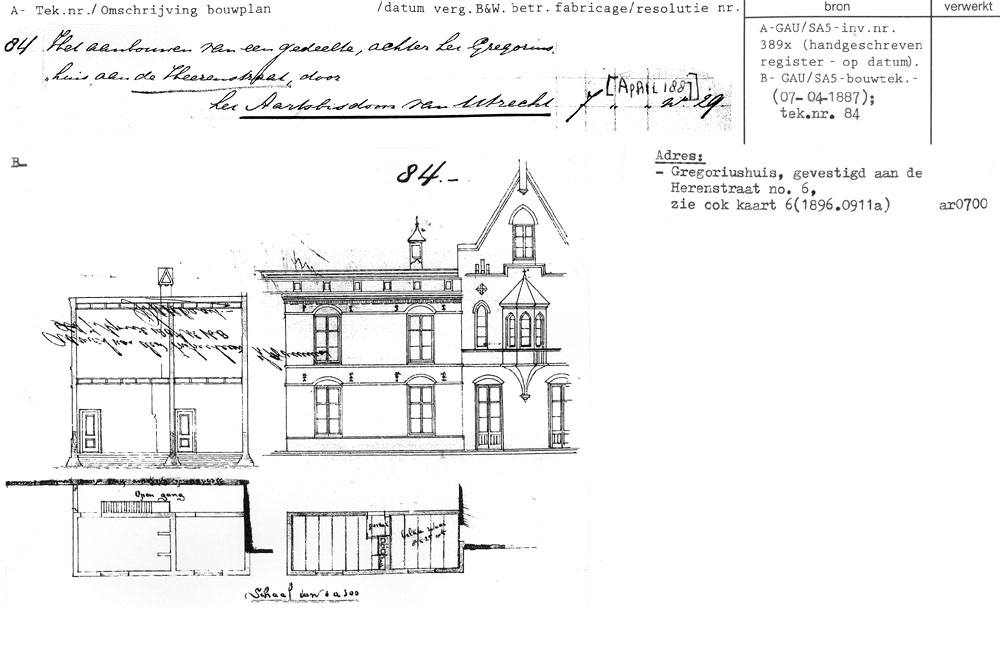 A- Tek.nr./Omschrijving bouwplan /datum verg.B&W. betr.fabricage/resolutie nr.
bron
verwerkt
84 Het aanbouwen van een gedeelte, achter het Gregorius-
huis aan de Heerenstraat, door
het Aartsbisdom van Utrecht
[APRIL 1887]
7 " " no 29.
A-GAU/SA5-inv.nr.
389x (handgeschreven
register - op datum).
B- GAU/SA5-bouwtek.-
(07-04-1887);
tek.nr. 84
B-
84.-
Adres:
- Gregoriushuis, gevestigd aan de
Herenstraat no. 6,
zie ook kaart 6(1896.0911a) ar0700
Open gang
Schaal van 1 a 100